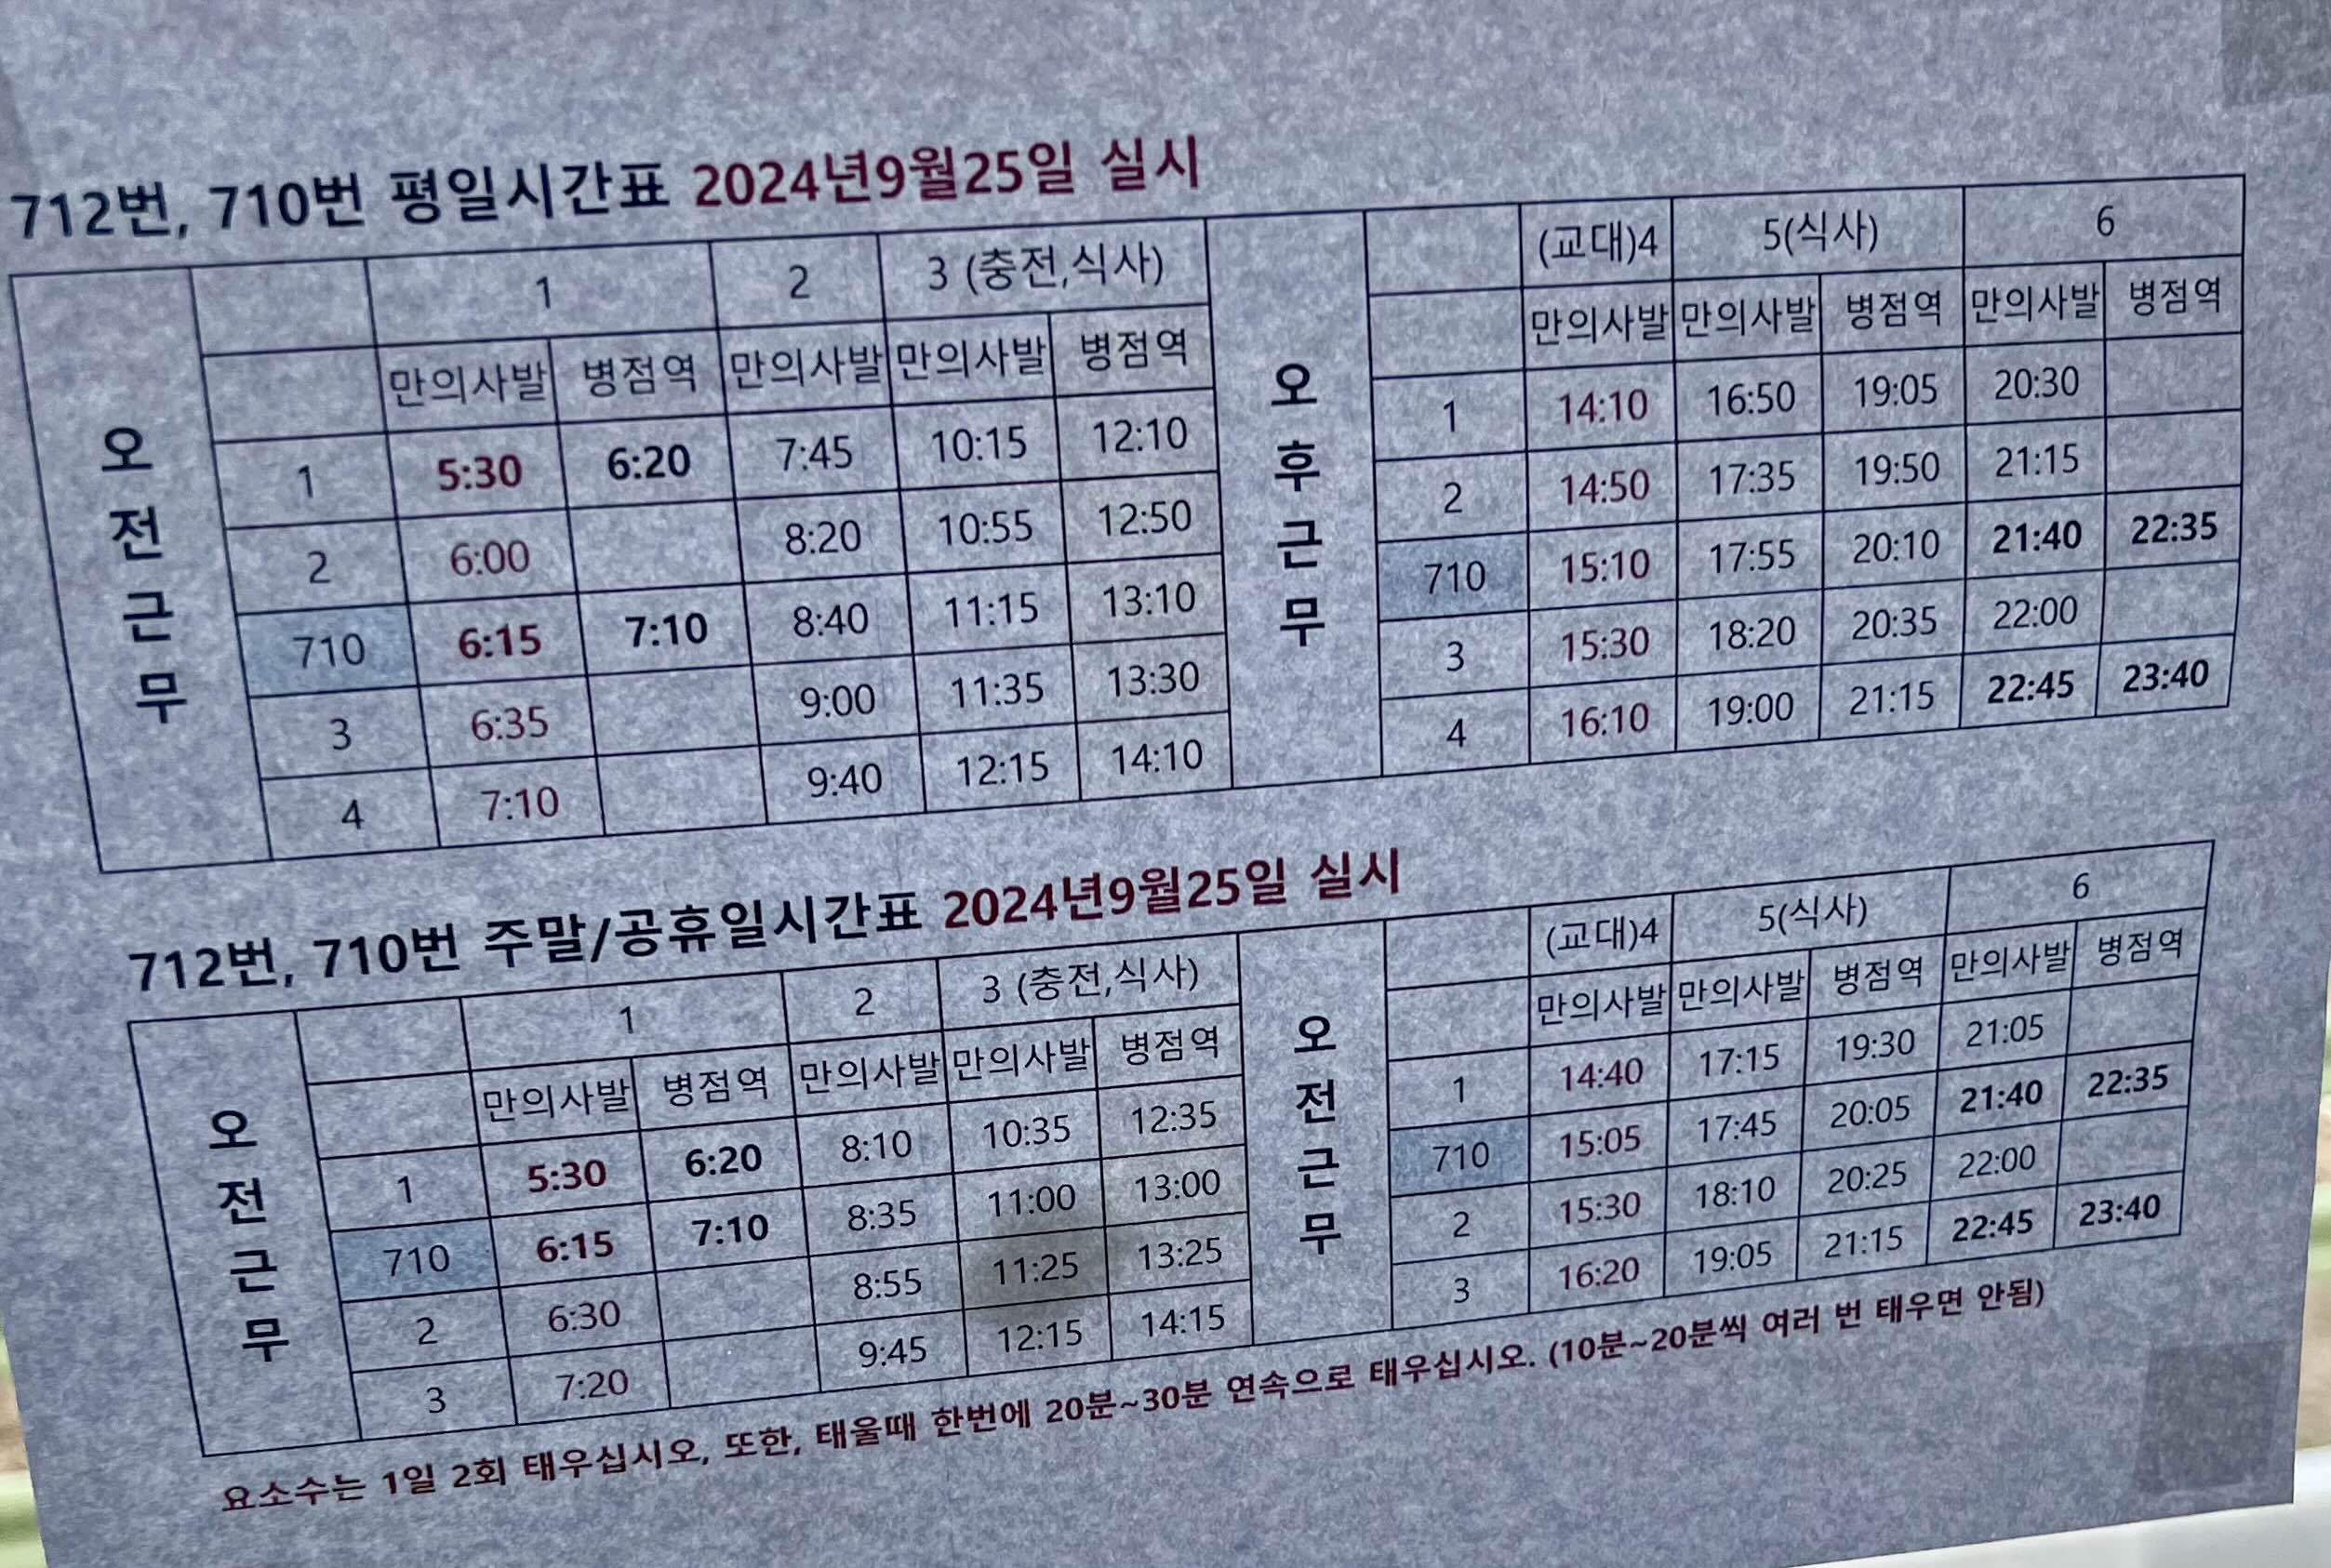 712번, 710번 평일시간표 2024년9월25일 실시
오전근무 1 2 3 (충전,식사) 오후근무 (교대)4 5(식사) 6
만의사발 병점역 만의사발 만의사발 병점역 만의사발 만의사발 병점역 만의사발 병점역
1 5:30 6:20 7:45 10:15 12:10 1 14:10 16:50 19:05 20:30
2 6:00 8:20 10:55 12:50 2 14:50 17:35 19:50 21:15
710 6:15 7:10 8:40 11:15 13:10 710 15:10 17:55 20:10 21:40 22:35
3 6:35 9:00 11:35 13:30 3 15:30 18:20 20:35 22:00
4 7:10 9:40 12:15 14:10 4 16:10 19:00 21:15 22:45 23:40
712번, 710번 주말/공휴일시간표 2024년9월25일 실시
오전근무 1 2 3 (충전,식사) 오전근무 (교대)4 5(식사) 6
만의사발 병점역 만의사발 만의사발 병점역 만의사발 만의사발 병점역 만의사발 병점역
1 5:30 6:20 8:10 10:35 12:35 1 14:40 17:15 19:30 21:05
710 6:15 7:10 8:35 11:00 13:00 710 15:05 17:45 20:05 21:40 22:35
2 6:30 8:55 11:25 13:25 2 15:30 18:10 20:25 22:00
3 7:20 9:45 12:15 14:15 3 16:20 19:05 21:15 22:45 23:40
요소수는 1일 2회 태우십시오, 또한, 태울때 한번에 20분~30분 연속으로 태우십시오. (10분~20분씩 여러 번 태우면 안됨)